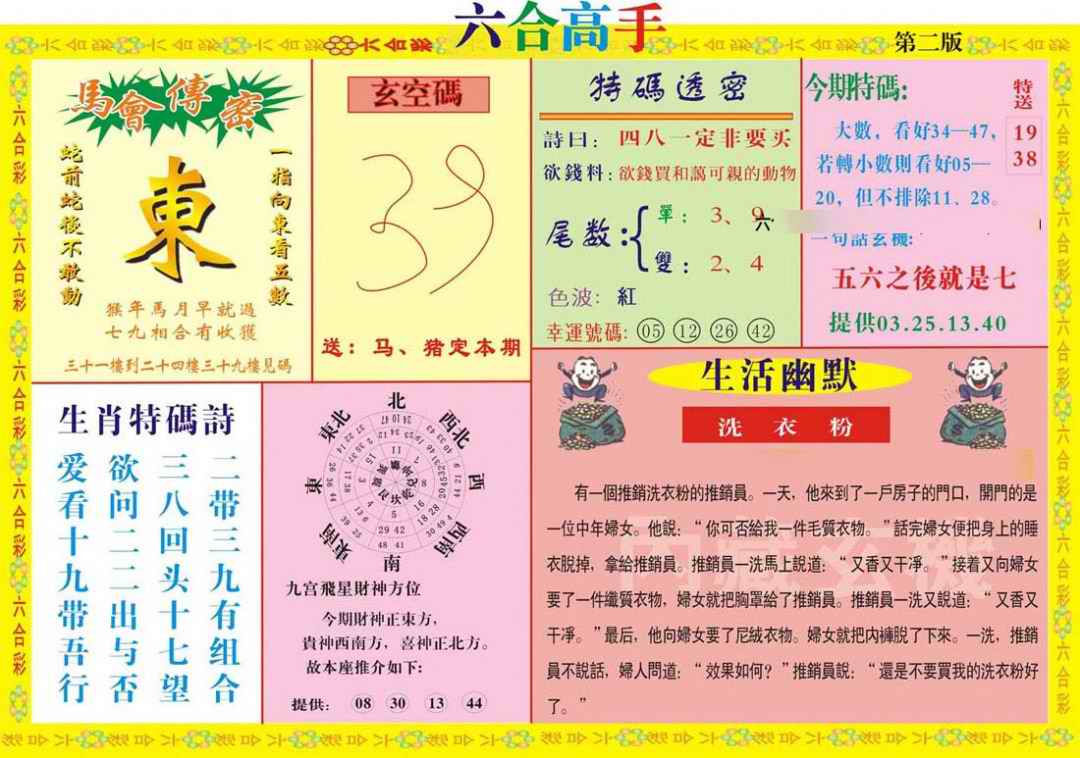 六合高手
第二版
馬會傳密
一指向東看五數
東
蛇前蛇後不敢動
猴年馬月早就過
七九相合有收獲
三十一樓到二十四樓三十九樓見碼
玄空碼
送：马、猪定本期
特碼透密
詩曰：四八一定非要买
欲錢料：欲錢買和藹可親的動物
尾数：
單：3、9
雙：2、4
六
色波：紅
幸運號碼：05 12 26 42
今期特碼：
大數，看好34—47，
若轉小數則看好05—
20，但不排除11、28。
特送
19
38
一句話玄機：
五六之後就是七
提供03.25.13.40
生肖特碼詩
二带三九有组合
三八回头十七望
欲问二二出与否
爱看十九带吾行
北
西北
西
西南
南
東南
東
東北
九宫飛星財神方位
今期財神正東方，
貴神西南方，喜神正北方。
故本座推介如下：
提供： 08 30 13 44
生活幽默
洗衣粉
有一個推銷洗衣粉的推銷員。一天，他來到了一戶房子的門口，開門的是
一位中年婦女。他說：“你可否給我一件毛質衣物。”話完婦女便把身上的睡
衣脫掉，拿給推銷員。推銷員一洗馬上說道：“又香又干凈。”接着又向婦女
要了一件纖質衣物，婦女就把胸罩給了推銷員。推銷員一洗又說道：“又香又
干凈。”最后，他向婦女要了尼絨衣物。婦女就把内褲脫了下來。一洗，推銷
員不說話，婦人問道：“效果如何？”推銷員說：“還是不要買我的洗衣粉好
了。”
内藏玄機